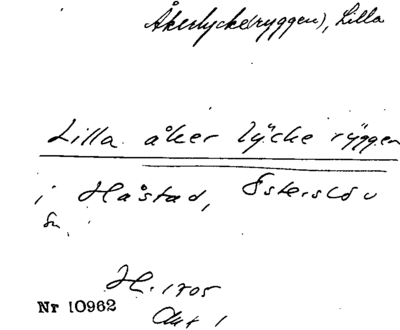 Åkerlycke(ryggen), Lilla
Lilla åker lÿcke rÿggen
i Håstad, Österslöv
sn.
H. 1705
Akt 1
Nr 10962